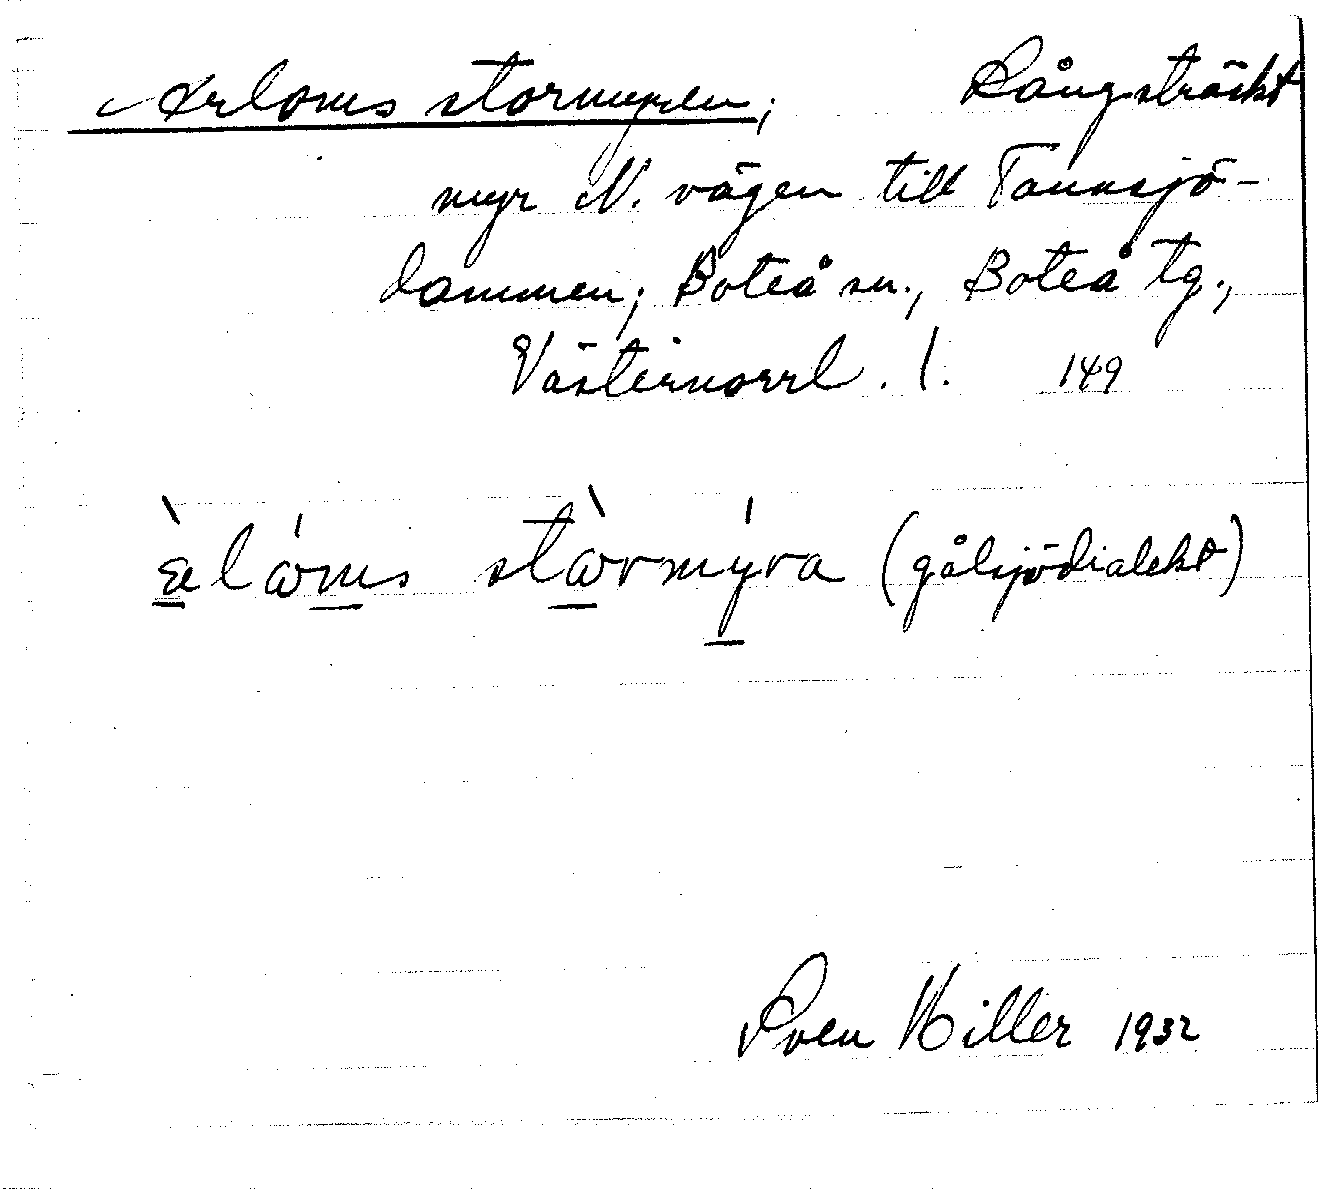 Ärloms stormyren; Långsträckt
myr N. vägen till Tannsjö-
dammen; Boteå sn., Boteå tg.,
Västernorrl. l. 149
ὲlωms stὼrmýra (gålsjödialekt)
Sven Hiller 1932